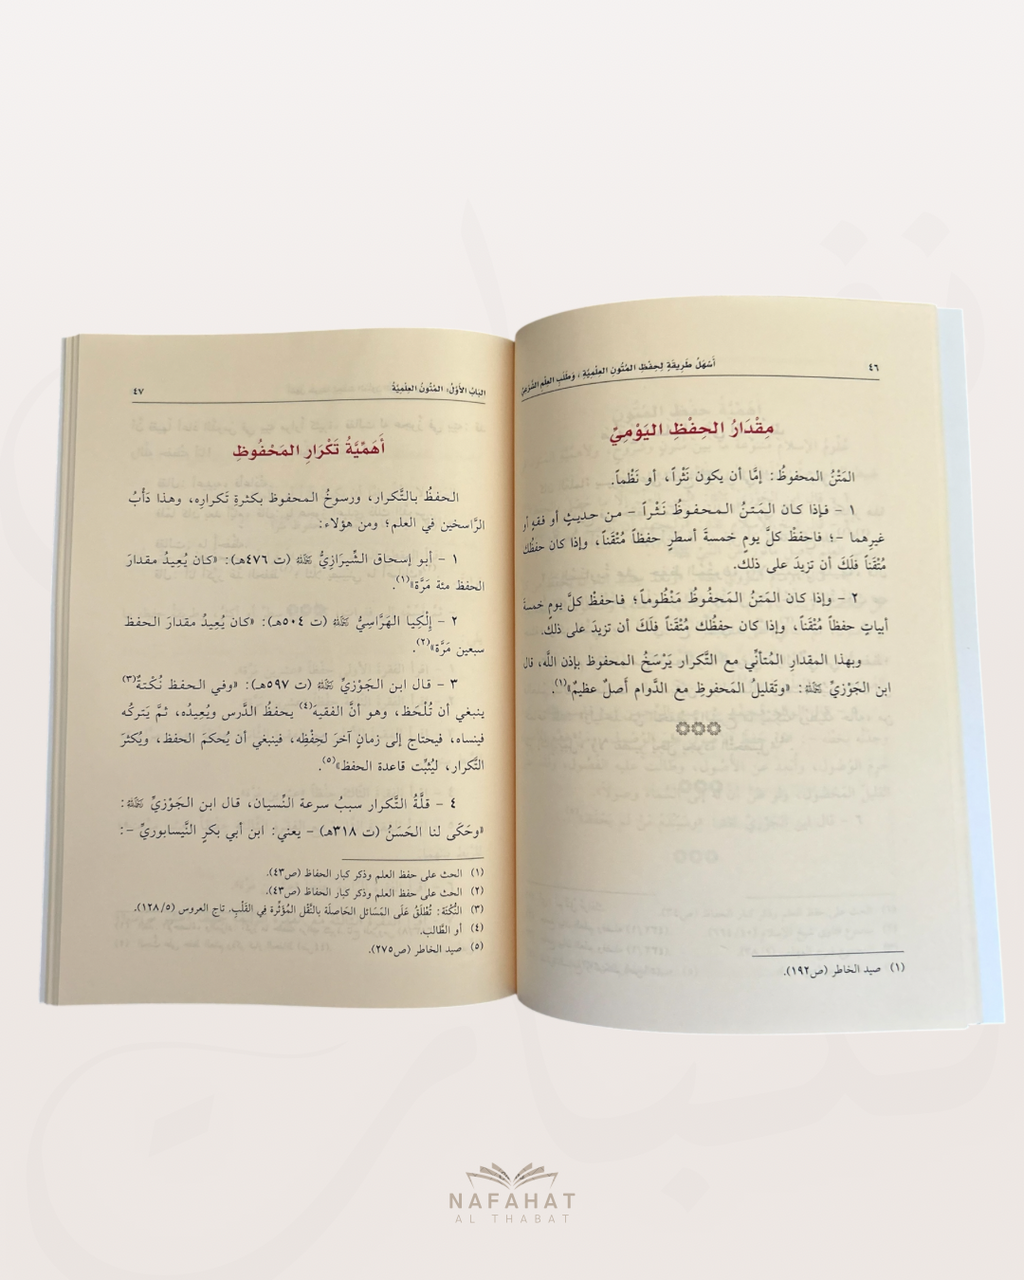 ٤٦
أَسْهَلُ طَرِيقَةٍ لِحِفْظِ المُتُونِ العِلْمِيَّةِ ، وَطَلَبِ العِلْمِ الشَّرْعِيِّ
مِقْدَارُ الحِفْظِ اليَوْمِيِّ
المَتْنُ المحفوظُ: إمَّا أن يكون نَثْراً، أو نَظْماً.
١ - فـإذا كـان الـمَـتـنُ الـمـحـفـوظُ نَـثْـراً - مـن حـديـثٍ أو فـقـهٍ أو
غيرِهما -؛ فاحفظْ كلَّ يومٍ خمسةَ أسطرٍ حفظاً مُتْقَناً، وإذا كان حفظُك
مُتْقَناً فلَكَ أن تزيدَ على ذلك.
٢ - وإذا كان المَتنُ المَحفُوظُ مَنْظُوماً؛ فاحفظْ كلَّ يومٍ خمسةَ
أبياتٍ حفظاً مُتْقَناً، وإذا كان حفظُك مُتْقَناً فلَكَ أن تزيدَ على ذلك.
وبهذا المقدارِ المُتأنِّي مع التَّكرار يَرْسَخُ المحفوظ بإذن اللَّه، قال
ابن الجَوْزيِّ رحمه الله: «وتَقليلُ المَحفوظِ مع الدَّوام أَصلٌ عظيمٌ»(١).
(١) صيد الخاطر (ص١٩٢).
البَابُ الأَوَّلُ: المُتُونُ العِلْمِيَّةُ
٤٧
أَهَمِّيَّةُ تَكْرَارِ المَحْفُوظِ
الحفظُ بـالتَّـكرار، ورسوخُ المحفوظ بكثرةِ تَكرارِه، وهذا دَأْبُ
الرَّاسخين في العلم؛ ومن هؤلاء:
١ - أبو إسحاق الشِّيرَازِيُّ رحمه الله (ت ٤٧٦هـ): «كان يُعِيدُ مقدارَ
الحفظ مئة مَرَّة»(١).
٢ - إِلْكِيا الهَرَّاسِيُّ رحمه الله (ت ٥٠٤هـ): «كان يُعِيدُ مقدارَ الحفظ
سبعين مَرَّة»(٢).
٣ - قال ابن الجَوْزيِّ رحمه الله (ت ٥٩٧هـ): «وفي الحفظ نُكْتةٌ(٣)
ينبغي أن تُلْحَظ، وهو أنَّ الفقيهَ(٤) يحفظُ الدَّرس ويُعِيدُه، ثمَّ يَتركُه
فينساه، فيحتاج إلى زمانٍ آخرَ لحِفْظِه، فينبغي أن يُحكمَ الحفظ، ويُكثرَ
التَّكرار، ليُثبِّت قاعدة الحفظ»(٥).
٤ - قلَّةُ التَّكرار سببُ سرعة النِّسيان، قال ابن الجَوْزيِّ رحمه الله:
«وحَكَى لنا الحَسَنُ (ت ٣١٨هـ) - يعني: ابن أبي بكرٍ النَّيسابوريِّ -:
(١) الحث على حفظ العلم وذكر كبار الحفاظ (ص٤٣).
(٢) الحث على حفظ العلم وذكر كبار الحفاظ (ص٤٣).
(٣) النُّكْتَة: تُطْلَقُ عَلَى المَسَائل الحَاصلَة بالنَّقْل المُؤَثِّرة فِي القَلْبِ. تاج العروس (١٢٨/٥).
(٤) أو الطَّالب.
(٥) صيد الخاطر (ص٢٧٥).
NAFAHAT
AL THABAT